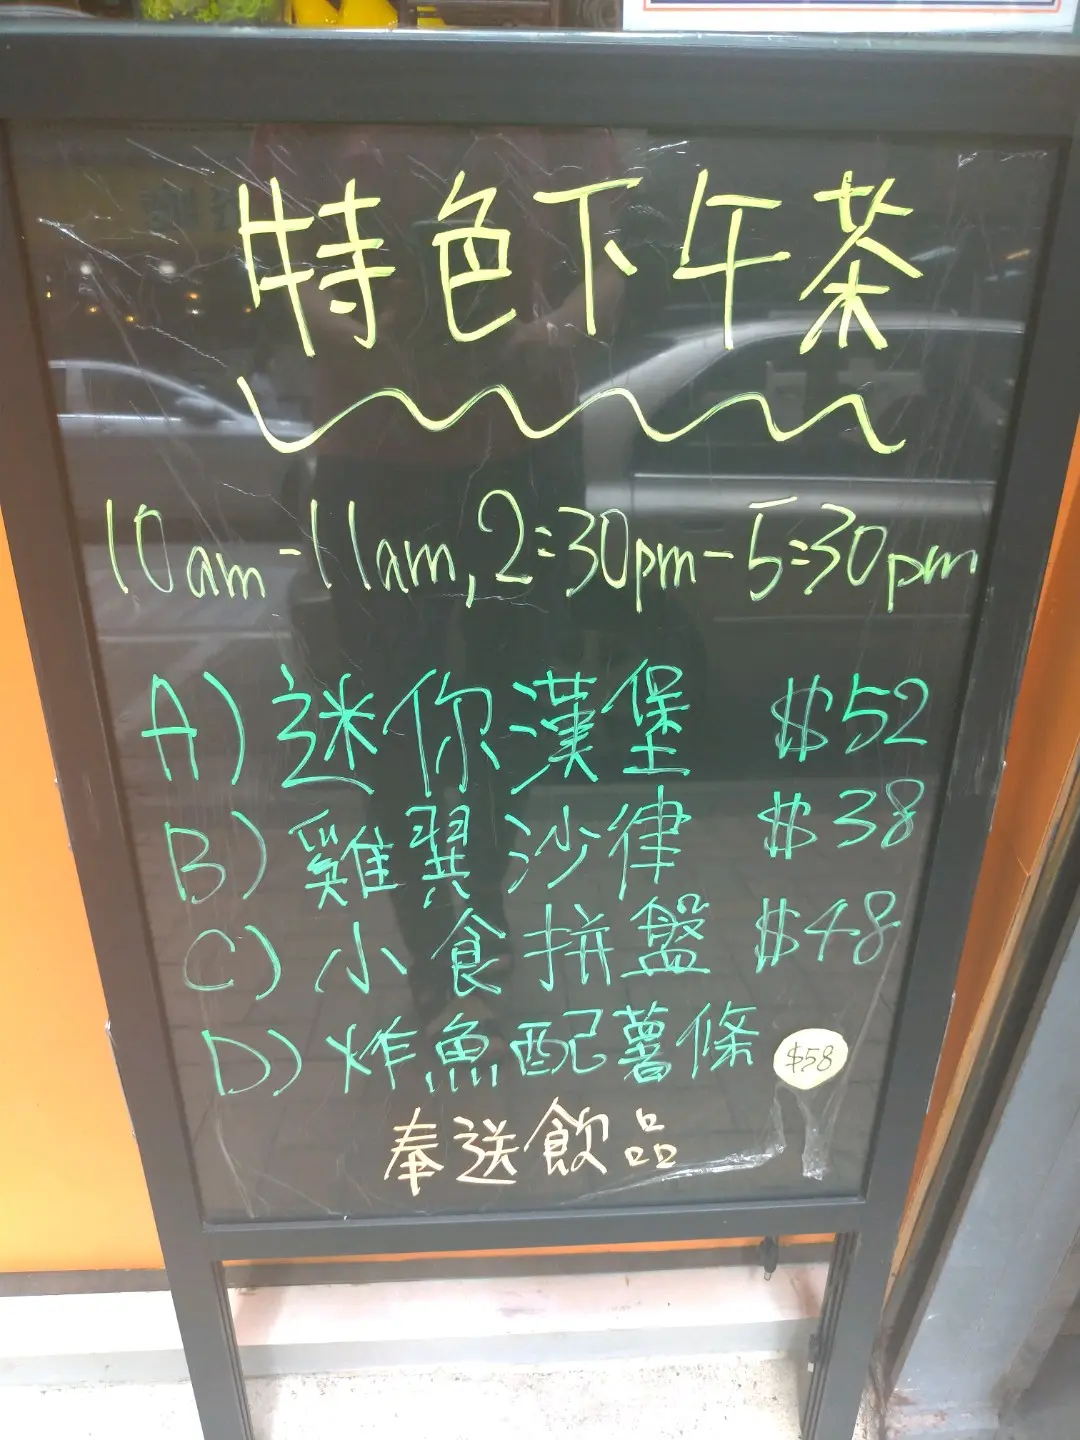 特色下午茶
10am-11am, 2:30pm-5:30pm
A) 迷你漢堡 $52
B) 雞翼沙律 $38
C) 小食拼盤 $48
D) 炸魚配薯條 $58
奉送飲品